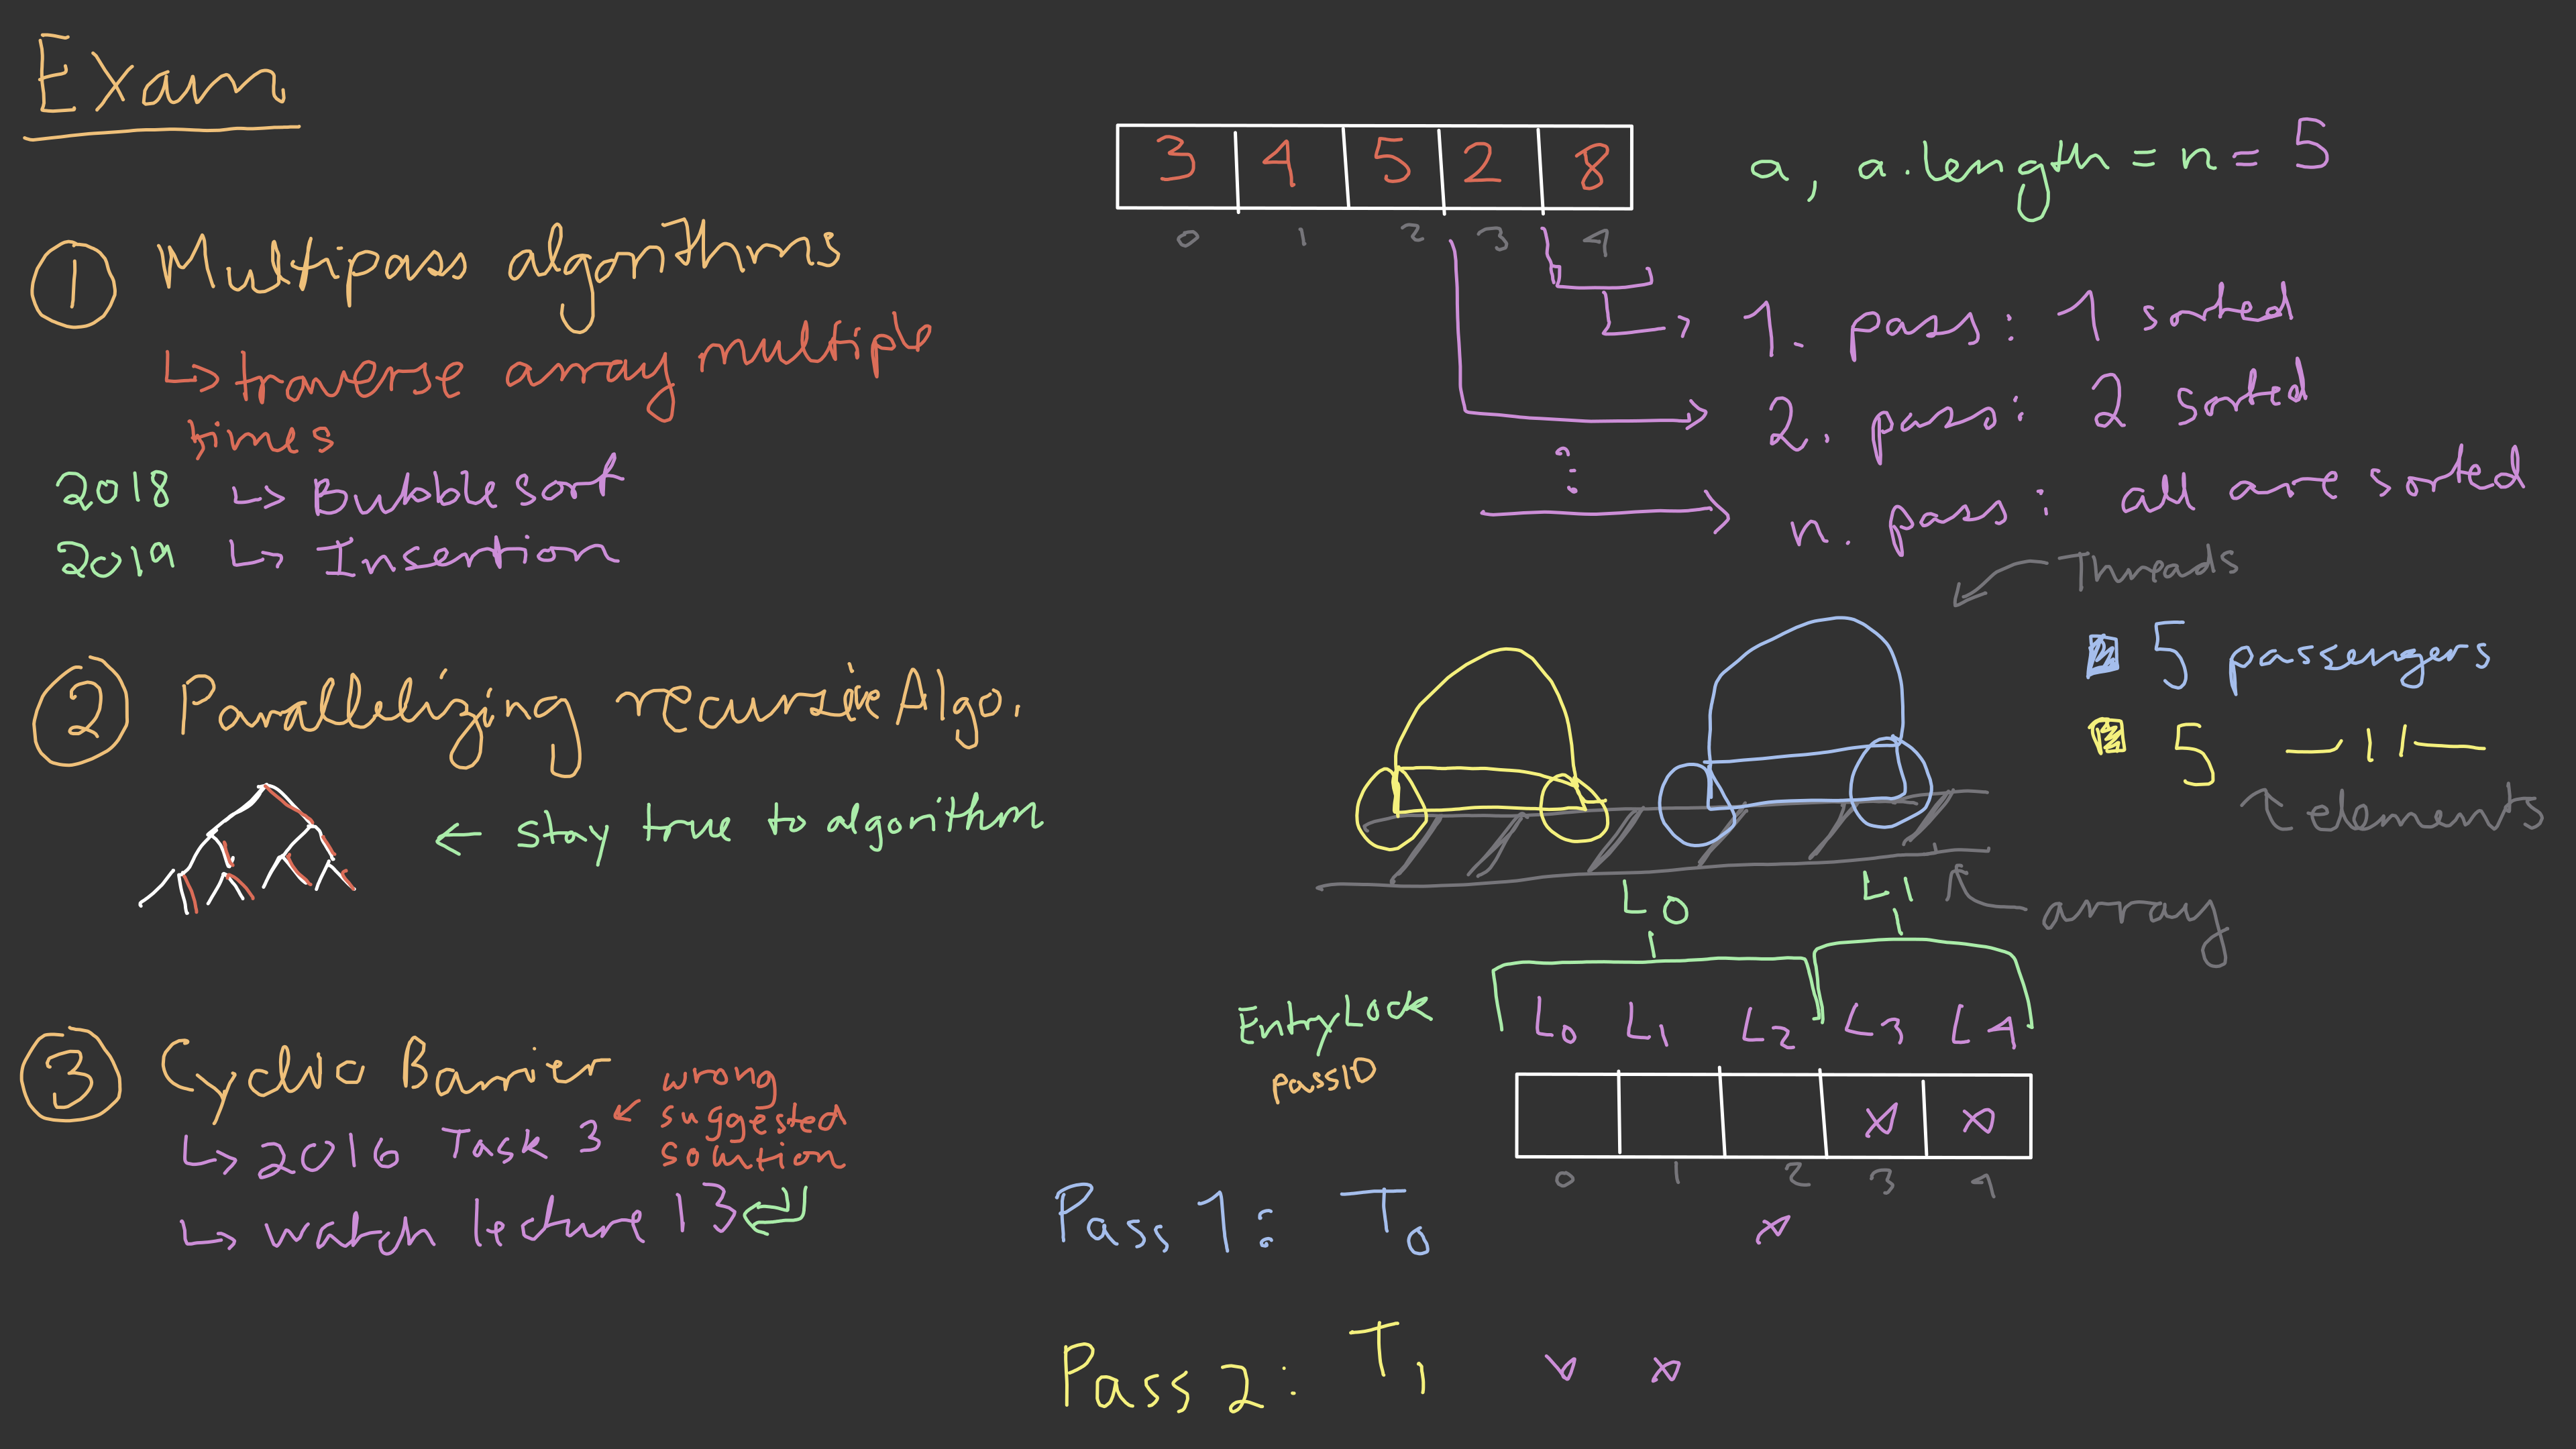 Exam
① Multipass algorithms
↳ traverse array multiple
times
2018 ↳ Bubblesort
2019 ↳ Insertion
② Parallelizing recursive Algo.
← stay true to algorithm
③ Cyclic Barrier
↳ 2016 Task 3 ← wrong
suggested
solution
↳ watch lecture 13
3 4 5 2 8
0 1 2 3 4
a, a.length = n = 5
1. pass: 1 sorted
2. pass: 2 sorted
⋮
n. pass: all are sorted
Threads
5 passengers
5 —11—
elements
array
L0 L1
EntryLock
passID
L0 L1 L2 L3 L4
x x
0 1 2 3 4
Pass 1: T0 x
Pass 2: T1 x x